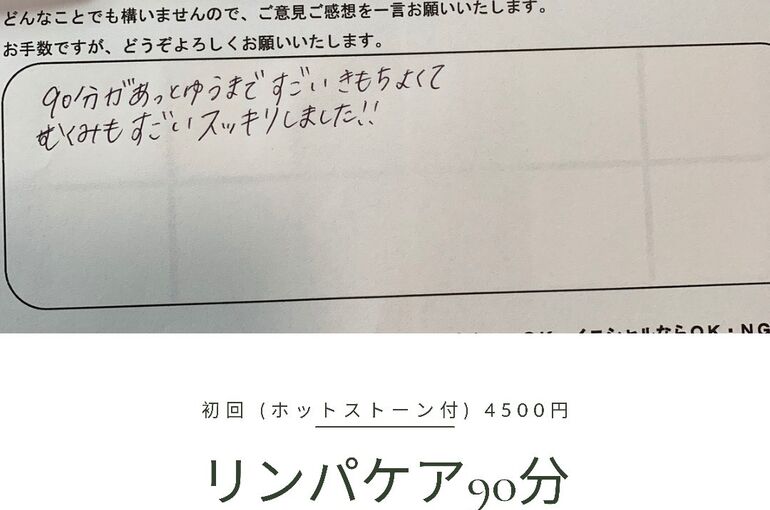 どんなことでも構いませんので、ご意見ご感想を一言お願いいたします。
お手数ですが、どうぞよろしくお願いいたします。
90分があっとゆうまで すごい きもちよくて
むくみも すごい スッキリしました!!
イニシャルならOK・NG
初回 (ホットストーン付) 4500円
リンパケア90分